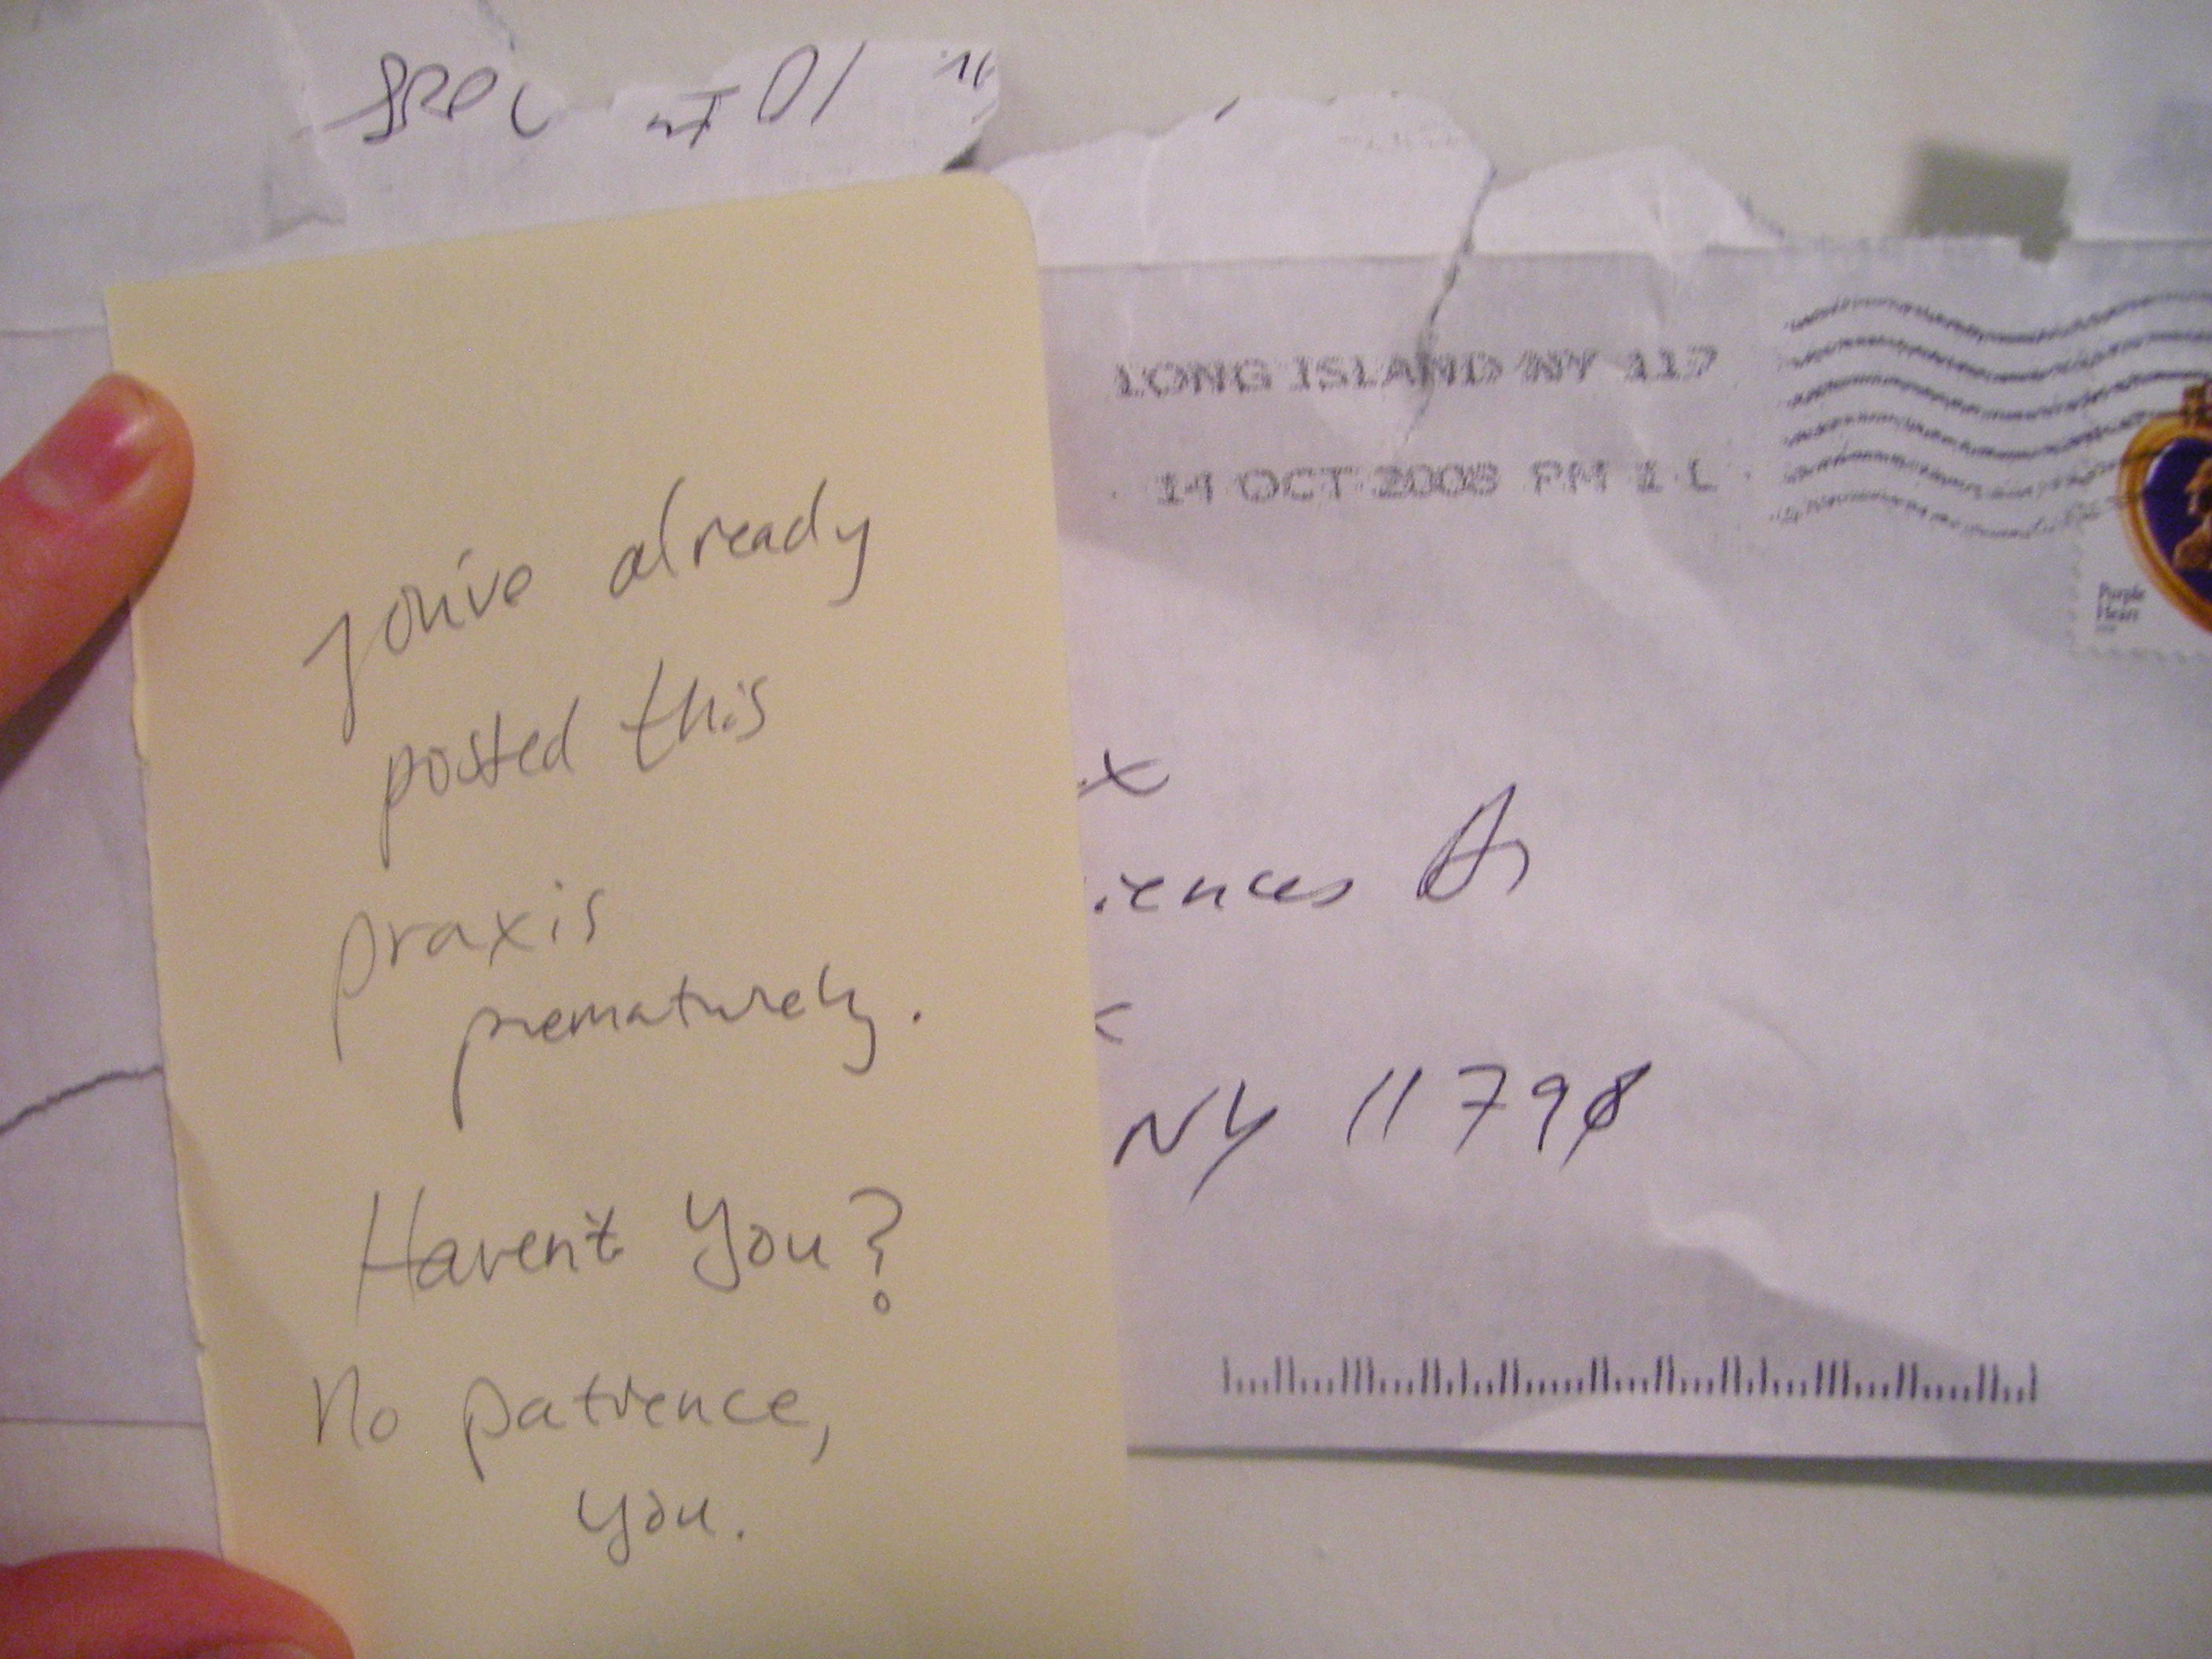 you've already
posted this
praxis
prematurely.
Haven't you?
No patience,
you.
LONG ISLAND NY 117
14 OCT 2008 PM 1 L
Purple
Heart
NY 11798